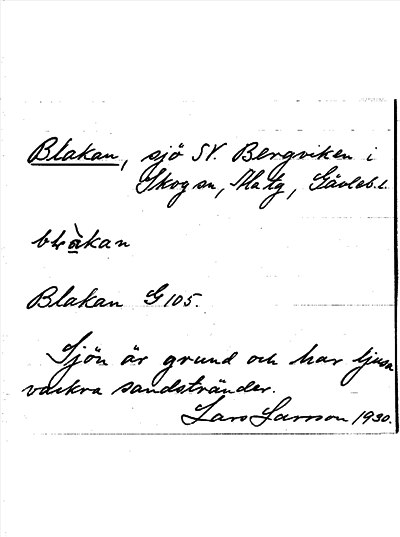 Blakan, sjö SV. Bergviken i
Skog sn, Hälg, Gävleb.l.
blàkan
Blakan G 105.
Sjön är grund och har ljusa
vackra sandstränder.
Lars Larsson 1930.